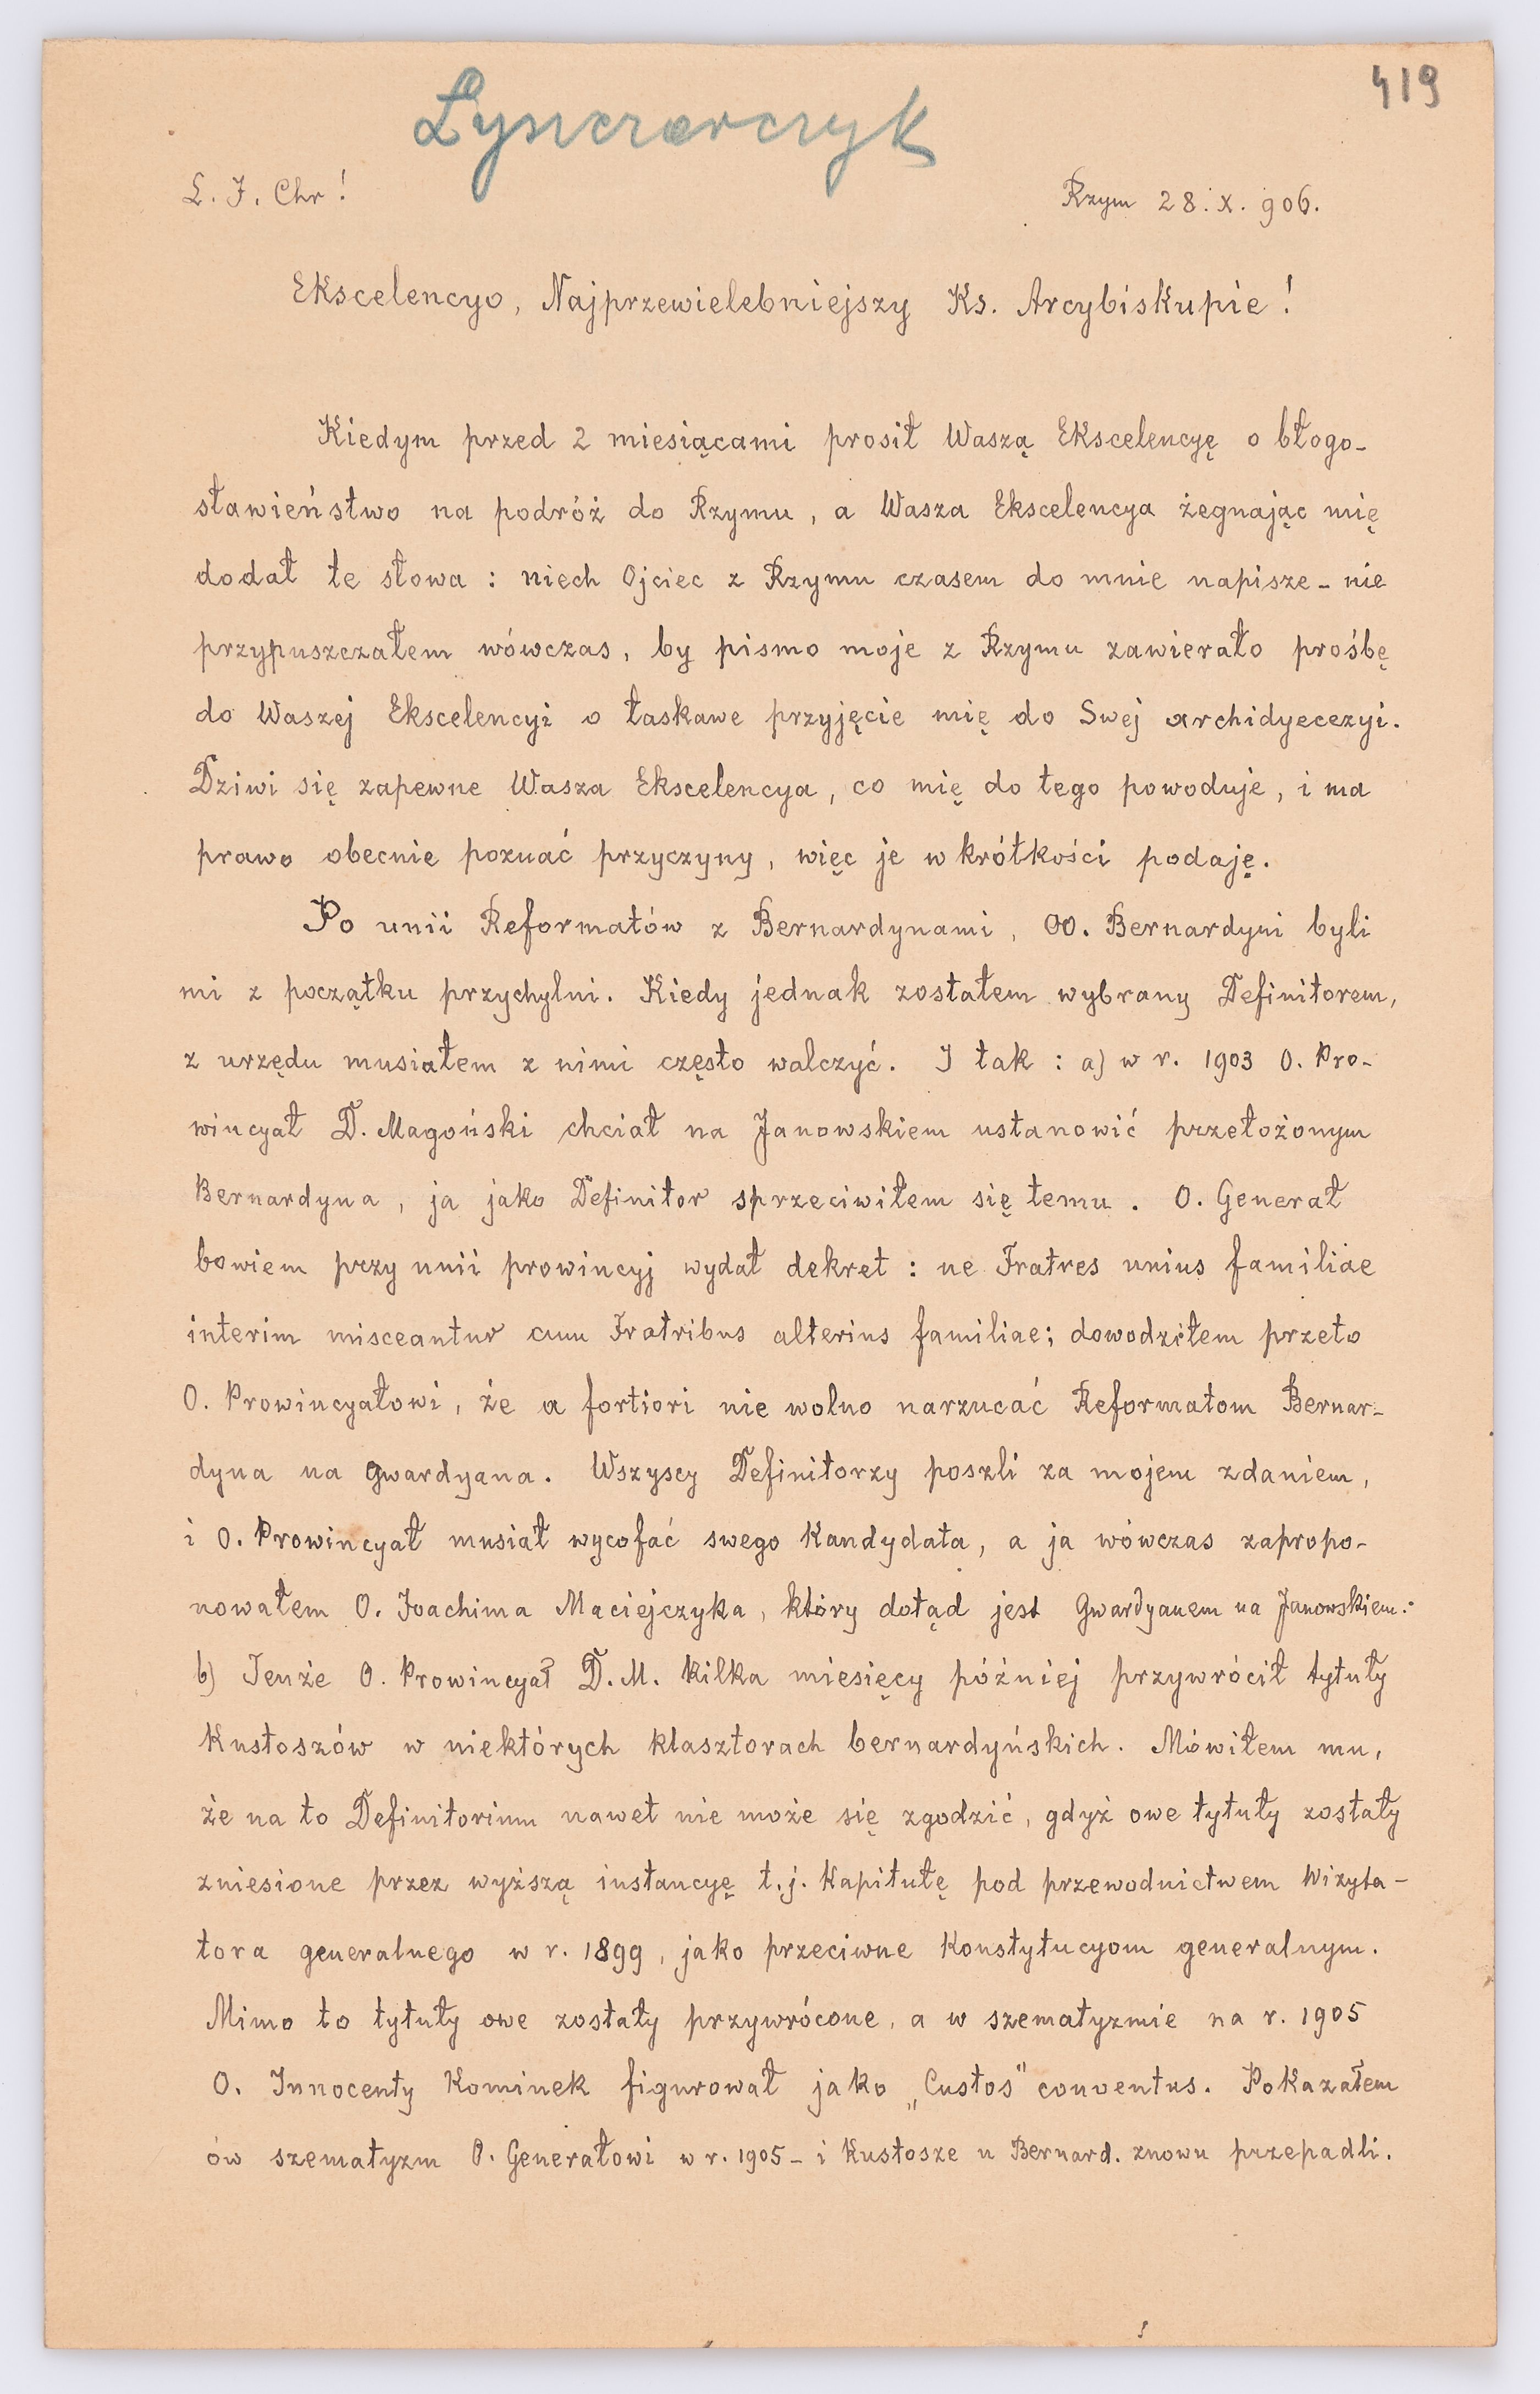 419
Łyszczarczyk
L. J. Chr!
Rzym 28. X. 906.
Ekscelencyo, Najprzewielebniejszy Ks. Arcybiskupie!
Kiedym przed 2 miesiącami prosił Waszą Ekscelencyę o błogo-
sławieństwo na podróż do Rzymu, a Wasza Ekscelencya żegnając mię
dodał te słowa: niech Ojciec z Rzymu czasem do mnie napisze - nie
przypuszczałem wówczas, by pismo moje z Rzymu zawierało prośbę
do Waszej Ekscelencyi o łaskawe przyjęcie mię do Swej archidyecezyi.
Dziwi się zapewne Wasza Ekscelencya, co mię do tego powoduje, i ma
prawo obecnie poznać przyczyny, więc je w krótkości podaję.
Po unii Reformatów z Bernardynami, OO. Bernardyni byli
mi z początku przychylni. Kiedy jednak zostałem wybrany Definitorem,
z urzędu musiałem z nimi często walczyć. I tak: a) w r. 1903 O. Pro-
wincyał D. Magoński chciał na Janowskiem ustanowić przełożonym
Bernardyna, ja jako Definitor sprzeciwiłem się temu. O. Generał
bowiem przy unii prowincyj wydał dekret: ne Fratres unius familiae
interim misceantur cum Fratribus alterius familiae; dowodziłem przeto
O. Prowincyałowi, że a fortiori nie wolno narzucać Reformatom Bernar-
dyna na gwardyana. Wszyscy Definitorzy poszli za mojem zdaniem,
i O. Prowincyał musiał wycofać swego Kandydata, a ja wówczas zapropo-
nowałem O. Joachima Maciejczyka, który dotąd jest Gwardyanem na Janowskiem.
b) Tenże O. Prowincyał D. M. kilka miesięcy później przywrócił tytuły
Kustoszów w niektórych klasztorach bernardyńskich. Mówiłem mu,
że na to Definitorium nawet nie może się zgodzić, gdyż owe tytuły zostały
zniesione przez wyższą instancyę t.j. Kapitułę pod przewodnictwem Wizyta-
tora generalnego w r. 1899, jako przeciwne Konstytucyom generalnym.
Mimo to tytuły owe zostały przywrócone, a w szematyzmie na r. 1905
O. Innocenty Kominek figurował jako „Custos" conventus. Pokazałem
ów szematyzm O. Generałowi w r. 1905 - i Kustosze u Bernard. znowu przepadli.